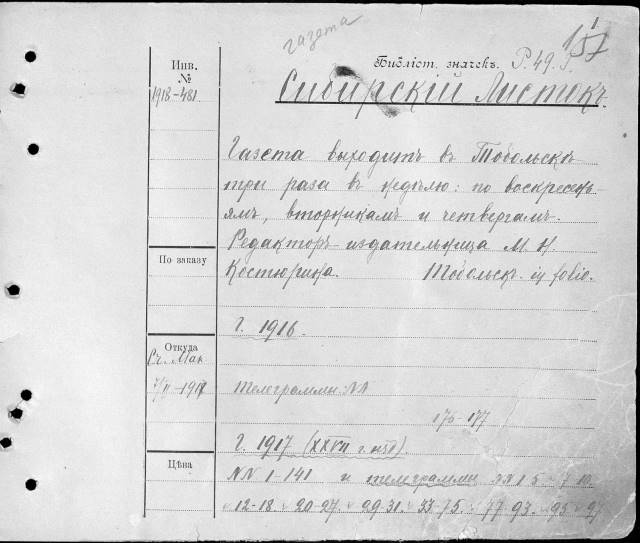 газета
Инв.
№
1918-481.
Библіот. значекъ. Р.49.
157
Сибирскій Листокъ.
Газета выходитъ въ Тобольскѣ
три раза въ недѣлю: по воскресень-
ямъ, вторникамъ и четвергамъ.
Редакторъ-издательница М. Н.
Костюрина. Тобольскъ. in folio.
По заказу
Г. 1916.
Откуда
Телеграммы: №№
176-177
Г. 1917 (XXVII г. изд).
Цѣна
№№ 1-141 и телеграммы №№ 1-5
12-18. 20-27. 29-31. 33-75. 77-93.